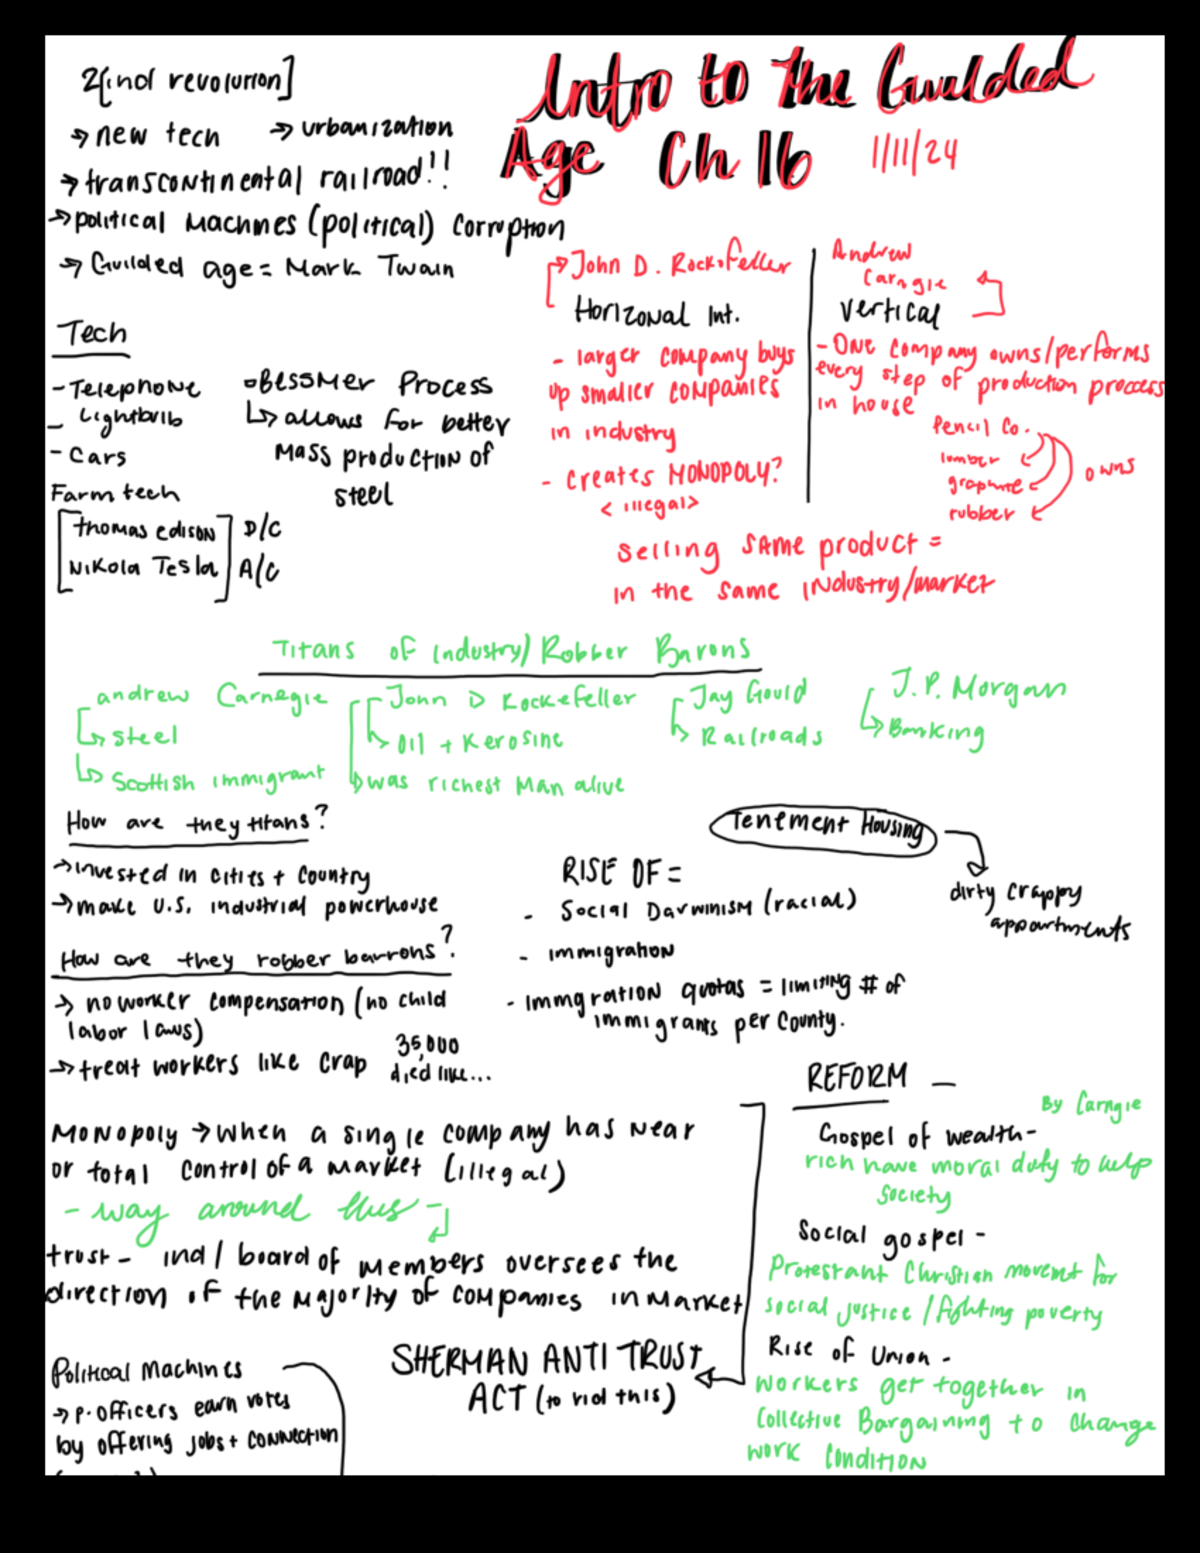 2[ind revolution]
→ new tech → urbanization
→ transcontinental railroad!!
→ political Machines (political) corruption
→ Guilded age = Mark Twain
Intro to The Guilded
Age Ch 16 1/11/24
Tech
- Telephone
- Lightbulb
- Cars
Farm tech
[thomas edison] D/C
[Nikola Tesla] A/C
Bessmer Process
↳ allows for better
mass production of
steel
John D. Rockefeller
Horizonal Int.
- larger company buys
up smaller companies
in industry
- creates MONOPOLY?
< illegal >
Andrew
Carngie
vertical
- One company owns/performs
every step of production process
in house
Pencil Co.
lumber
graphite
rubber
owns
selling same product =
in the same industry/market
Titans of Industry/Robber Barons
andrew Carnegie
↳ steel
↳ Scottish immigrant
John D Rockefeller
↳ Oil + Kerosine
↳ was richest man alive
Jay Gould
↳ Railroads
J.P. Morgan
↳ Banking
How are they titans?
→ invested in cities + country
→ make U.S. industrial powerhouse
How are they robber barrons?
→ no worker compensation (no child
labor laws)
→ treat workers like crap
35,000
died like...
Tenement Housing
dirty crappy
appartments
RISE OF =
- Social Darwinism (racial)
- immigration
- Immgration quotas = limiting # of
immigrants per county.
Monopoly → when a single company has near
or total control of a market (illegal)
- way around this -
trust - ind / board of members oversees the
direction of the majority of companies in market
SHERMAN ANTI TRUST
ACT (to rid this)
Political Machines
→ p. officers earn votes
by offering jobs + connection
REFORM -
By Carngie
Gospel of wealth -
rich have moral duty to help
society
Social gospel -
Protestant Christian movemt for
social justice / fighting poverty
Rise of Union -
workers get together in
Collective Bargaining to change
work condition